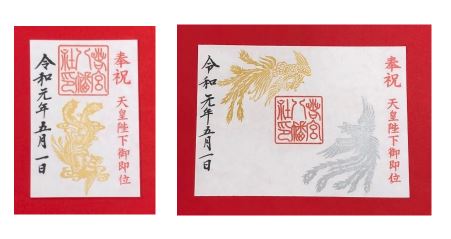 奉祝
天皇陛下御即位
令和元年五月一日
奉祝
天皇陛下御即位
令和元年五月一日